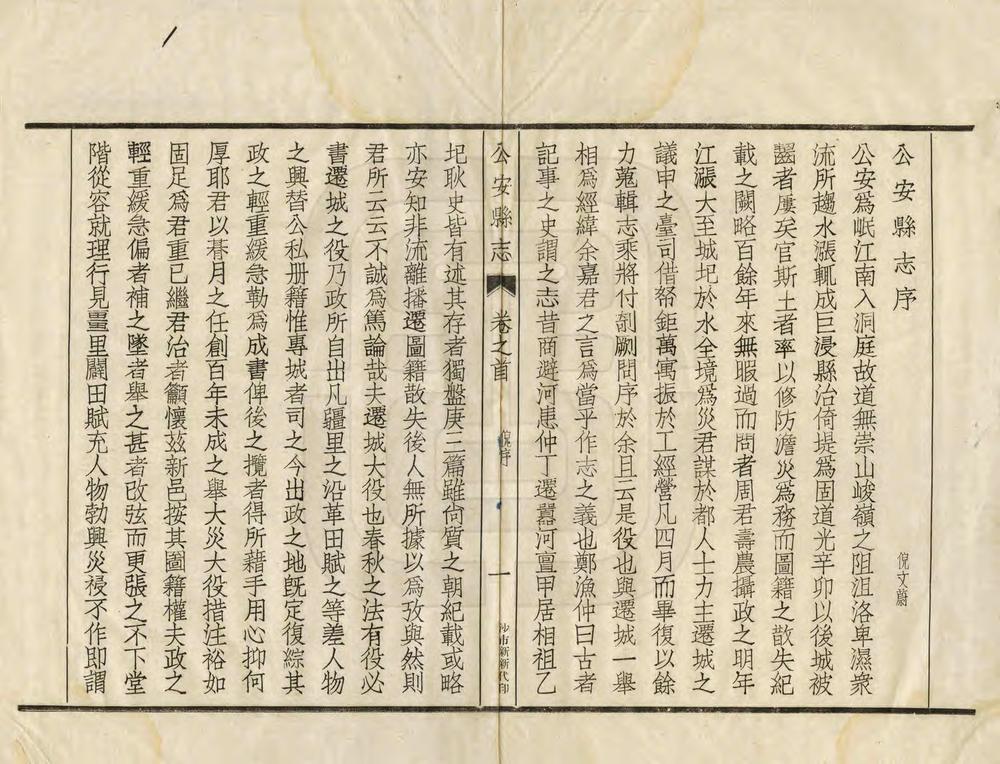 公安縣志序
倪文蔚
公安爲岷江南入洞庭故道無崇山峻嶺之阻沮洛卑濕衆
流所趨水漲輒成巨浸縣治倚堤爲固道光辛卯以後城被
齧者屢矣官斯土者率以修防澹災爲務而圖籍之散失紀
載之闕略百餘年來無暇過而問者周君壽農攝政之明年
江漲大至城圮於水全境爲災君謀於都人士力主遷城之
議申之臺司借帑鉅萬寓振於工經營凡四月而畢復以餘
力蒐輯志乘將付剞劂問序於余且云是役也與遷城一舉
相爲經緯余嘉君之言爲當乎作志之義也鄭漁仲曰古者
記事之史謂之志昔商避河患仲丁遷囂河亶甲居相祖乙
公安縣志
卷之首
倪序
一
沙市新新代印
圮耿史皆有述其存者獨盤庚三篇雖尙質之朝紀載或略
亦安知非流離播遷圖籍散失後人無所據以爲攷與然則
君所云云不誠爲篤論哉夫遷城大役也春秋之法有役必
書遷城之役乃政所自出凡疆里之沿革田賦之等差人物
之興替公私册籍惟專城者司之今出政之地旣定復綜其
政之輕重緩急勒爲成書俾後之攬者得所藉手用心抑何
厚耶君以朞月之任創百年未成之舉大災大役措注裕如
固足爲君重已繼君治者籲懷茲新邑按其圖籍權夫政之
輕重緩急偏者補之墜者舉之甚者改弦而更張之不下堂
階從容就理行見畺里闢田賦充人物勃興災祲不作即謂